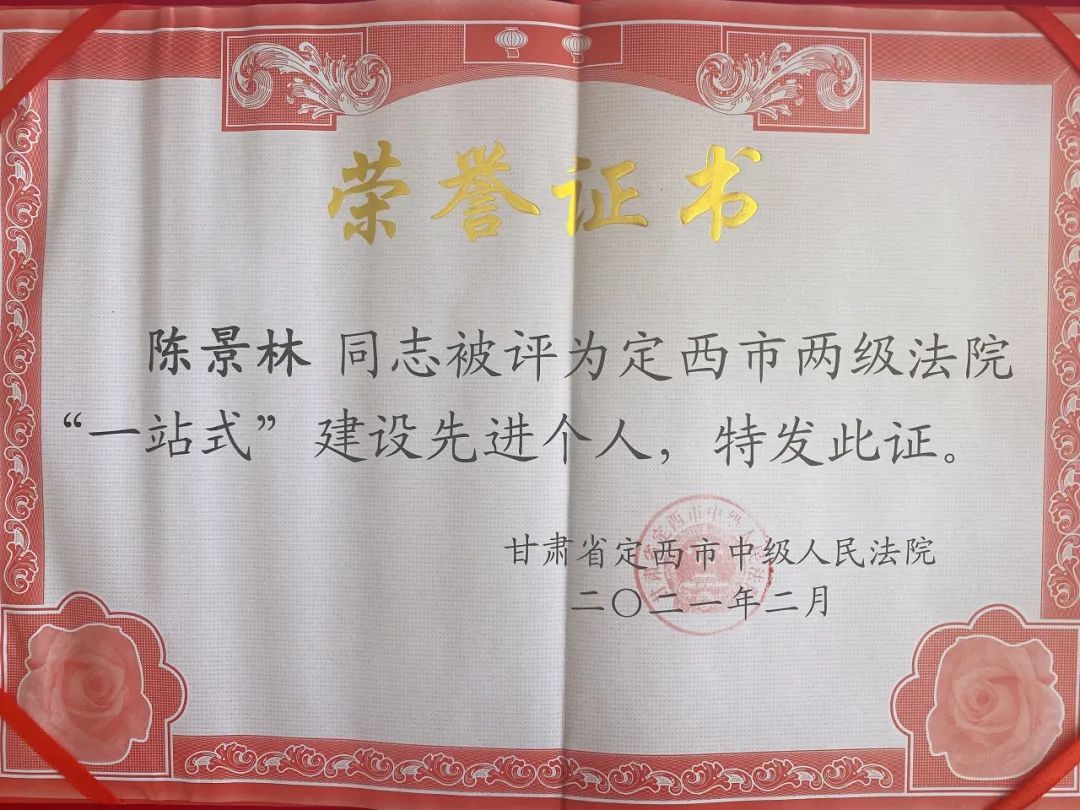 荣誉证书
陈景林 同志被评为定西市两级法院
“一站式”建设先进个人，特发此证。
甘肃省定西市中级人民法院
二〇二一年二月
甘肃省定西市中级人民法院